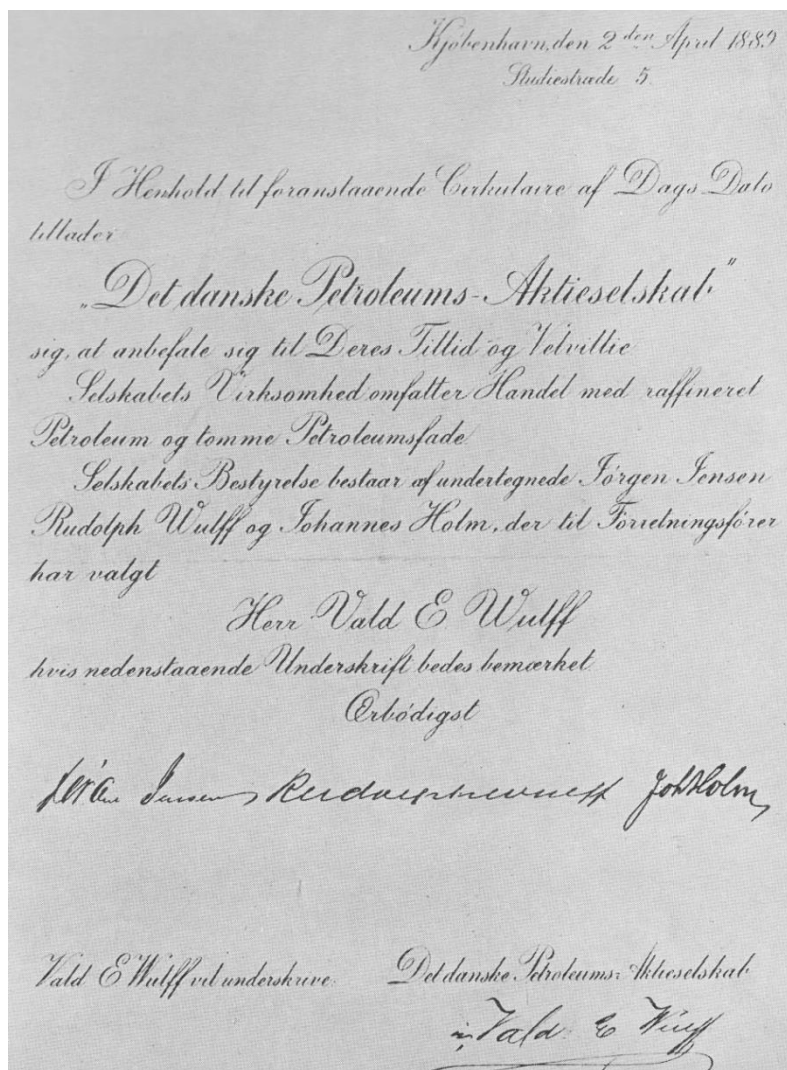 Kjøbenhavn, den 2den April 1889
Studiestræde 5.
I Henhold til foranstaaende Cirkulaire af Dags Dato
tillader
„Det danske Petroleums-Aktieselskab”
sig, at anbefale sig til Deres Tillid og Velvillie
Selskabets Virksomhed omfatter Handel med raffineret
Petroleum og tomme Petroleumsfade
Selskabets Bestyrelse bestaar af undertegnede Jørgen Jensen
Rudolph Wulff og Johannes Holm, der til Forretningsfører
har valgt
Herr Vald E Wulff
hvis nedenstaaende Underskrift bedes bemærket
Ærbödigst
Jensen Rudolph Wulff Joh Holm
Vald E Wulff vil underskrive: Det danske Petroleums-Aktieselskab
Vald. E Wulff